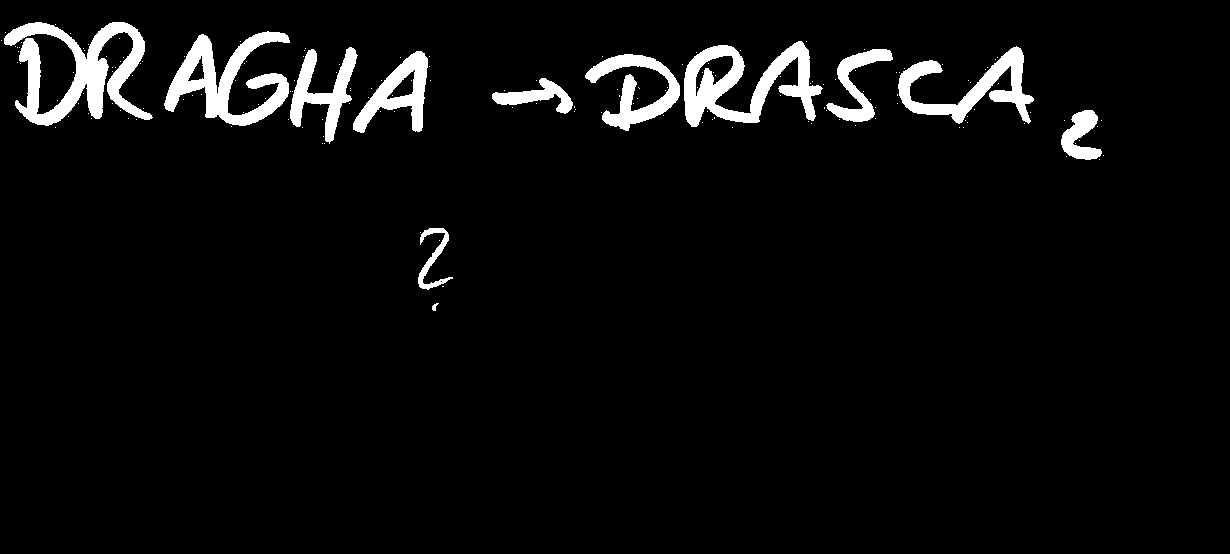 DRAGHA → DRASCA 2
?